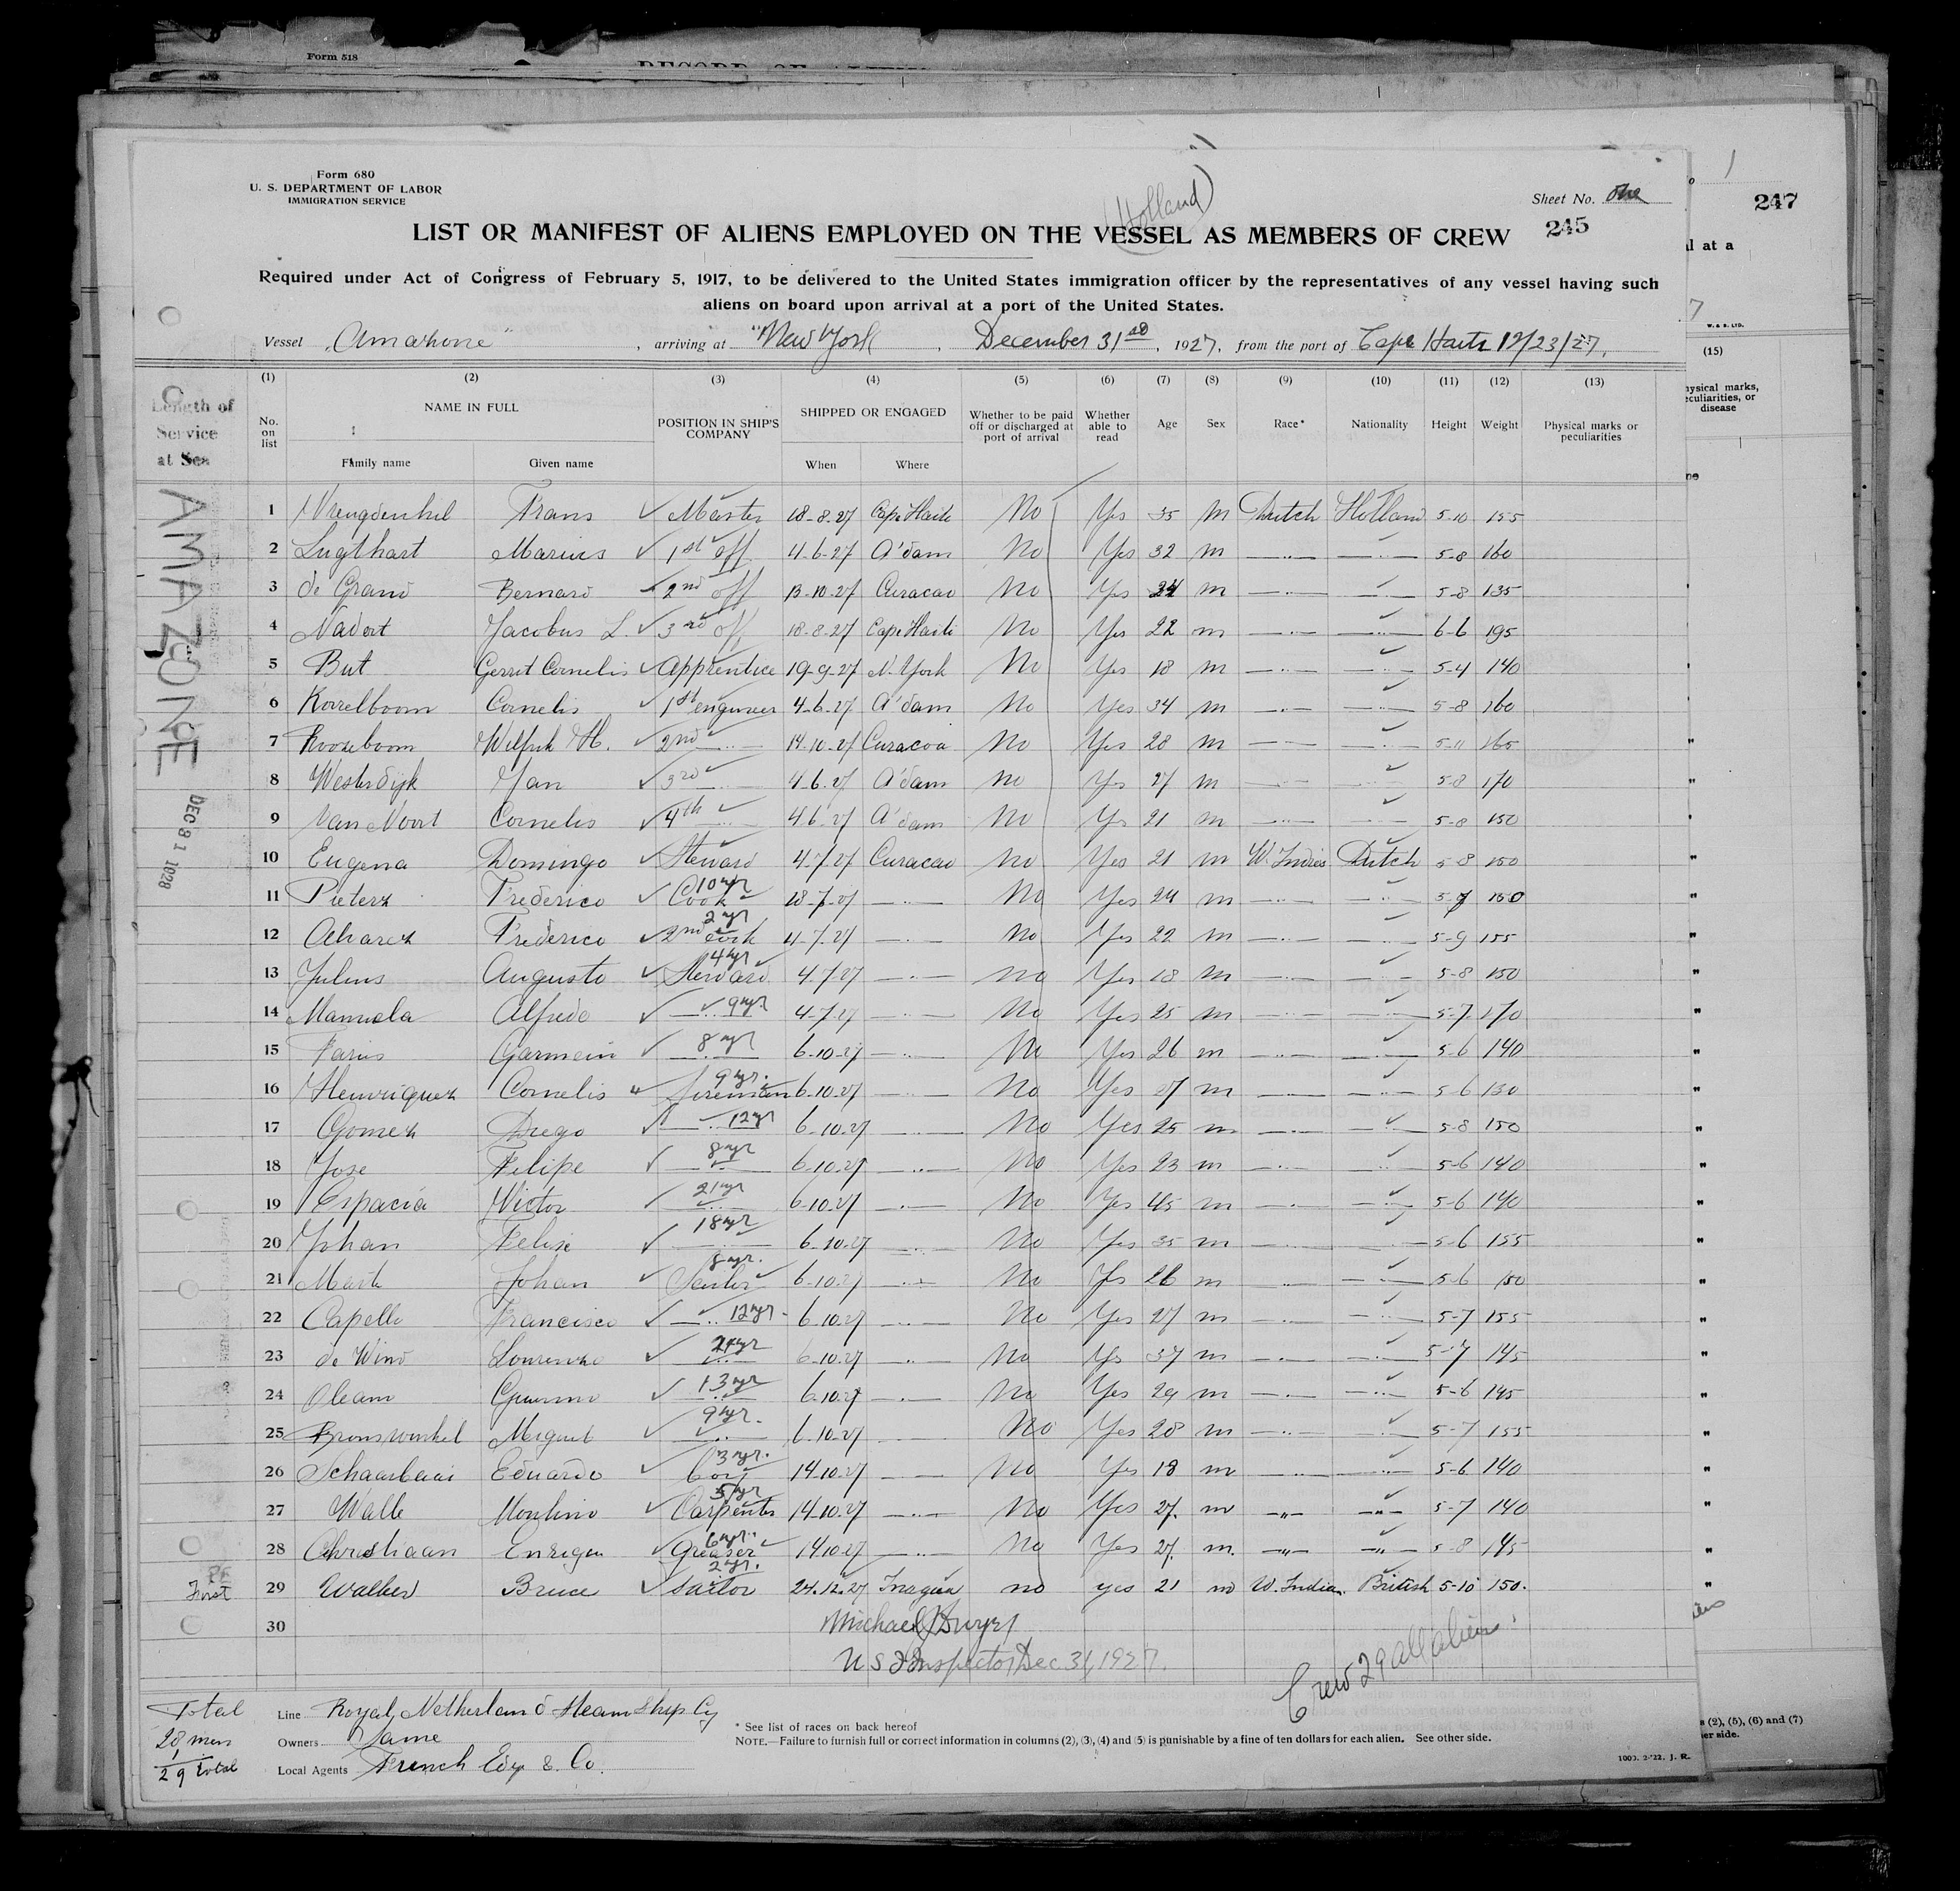 Form 518
RECORD OF ALIEN
Form 680
U. S. DEPARTMENT OF LABOR
IMMIGRATION SERVICE
(Holland)
Sheet No. One
245
247
LIST OR MANIFEST OF ALIENS EMPLOYED ON THE VESSEL AS MEMBERS OF CREW
Required under Act of Congress of February 5, 1917, to be delivered to the United States immigration officer by the representatives of any vessel having such
aliens on board upon arrival at a port of the United States.
Vessel "Amazone", arriving at "New York, December 31st, 1927, from the port of Cape Haiti 12/23/27.
(1) (2) (3) (4) (5) (6) (7) (8) (9) (10) (11) (12) (13)
Length of Service at Sea
No. on list NAME IN FULL Family name Given name POSITION IN SHIP'S COMPANY SHIPPED OR ENGAGED When Where Whether to be paid off or discharged at port of arrival Whether able to read Age Sex Race* Nationality Height Weight Physical marks or peculiarities
AMAZONE
DEC 31 1928
1 Vreugdenhil Frans ✓ Master 18-8-27 Cape Haiti No Yes 35 M Dutch Holland 5-10 155
2 Lugthart Marius ✓ 1st off 4-6-27 A'dam No Yes 32 m —"— —"— 5-8 160
3 de Grand Bernard ✓ 2nd off 13-10-27 Curacao No Yes 24 m —"— —"— 5-8 135
4 Nadort Jacobus L. ✓ 3rd off 18-8-27 Cape Haiti No Yes 22 m —"— —"— 6-6 195
5 But Gerrit Cornelis ✓ Apprentice 19-9-27 N. York No Yes 18 m —"— —"— 5-4 140
6 Korrelboom Cornelis ✓ 1st engineer 4-6-27 A'dam No Yes 34 m —"— —"— 5-8 160
7 Rooseboom H. ✓ 2nd —"— 14-10-27 Curacoa No Yes 28 m —"— —"— 5-11 165
8 Westerdijk Jan ✓ 3rd —"— 4-6-27 A'dam No Yes 27 m —"— —"— 5-8 170
9 Van Noort Cornelis ✓ 4th —"— 4-6-27 A'dam No Yes 21 m —"— —"— 5-8 150
10 Eugena Domingo ✓ Steward 4-7-27 Curacao No Yes 21 m W. Indies Dutch 5-8 150
11 Pieterz Frederico ✓ Cook 10 yr 18-7-27 —"— No Yes 24 m —"— —"— 5-7 150
12 Alvarez Frederico ✓ 2nd cook 2 yr 4-7-27 —"— No Yes 22 m —"— —"— 5-9 155
13 Julius Augusto ✓ Steward 4 yr 4-7-27 —"— No Yes 18 m —"— —"— 5-8 150
14 Manuela Alfredo ✓ —"— 9 yr 4-7-27 —"— No Yes 25 m —"— —"— 5-7 170
15 Farius Garmein ✓ —"— 8 yr 6-10-27 —"— No Yes 26 m —"— —"— 5-6 140
16 Henriquez Cornelis ✓ Fireman 9 yr. 6-10-27 —"— No Yes 27 m —"— —"— 5-6 130
17 Gomez Diego ✓ —"— 12 yr 6-10-27 —"— No Yes 25 m —"— —"— 5-8 150
18 Jose Filipe ✓ —"— 8 yr 6-10-27 —"— No Yes 23 m —"— —"— 5-6 140
19 Espacia Victor ✓ —"— 21 yr 6-10-27 —"— No Yes 45 m —"— —"— 5-6 140
20 Johan Felix ✓ —"— 18 yr 6-10-27 —"— No Yes 35 m —"— —"— 5-6 155
21 Johan ✓ Sailor 8 yr. 6-10-27 —"— No Yes 26 m —"— —"— 5-6 150
22 Capello Francisco ✓ —"— 12 yr 6-10-27 —"— No Yes 27 m —"— —"— 5-7 155
23 de Wind Lourenzo ✓ —"— 24 yr 6-10-27 —"— No Yes 37 m —"— —"— 5-7 145
24 Oleam ✓ —"— 13 yr 6-10-27 —"— No Yes 29 m —"— —"— 5-6 145
25 Bronswinkel Miguel ✓ —"— 9 yr. 6-10-27 —"— No Yes 28 m —"— —"— 5-7 155
26 Eduardo ✓ boy 3 yr. 14-10-27 —"— No Yes 18 m —"— —"— 5-6 140
27 Walle ✓ Carpenter 5 yr 14-10-27 —"— No Yes 27 m —"— —"— 5-7 140
28 Christiaan Enrigue ✓ Greaser 6 yr. 14-10-27 —"— No Yes 27 m. —"— —"— 5-8 145
First 29 Walker Bruce ✓ Sailor 2 yr. 24.12.27 Inagua no yes 21 m W. Indian British 5-10 150.
30
Michael J Dwyer
U S Inspector Dec 31, 1927.
Crew 29 all aliens
Total
28 men
1
29 total
Line Royal Netherland Steam Ship Cy
Owners Same
Local Agents French Edye & Co.
* See list of races on back hereof
NOTE.—Failure to furnish full or correct information in columns (2), (3), (4) and (5) is punishable by a fine of ten dollars for each alien. See other side.
1000. 2-'22. J. R.
l at a
W. & S. LTD.
(15)
ysical marks,
eculiarities, or
disease
s (2), (5), (6) and (7)
er side.